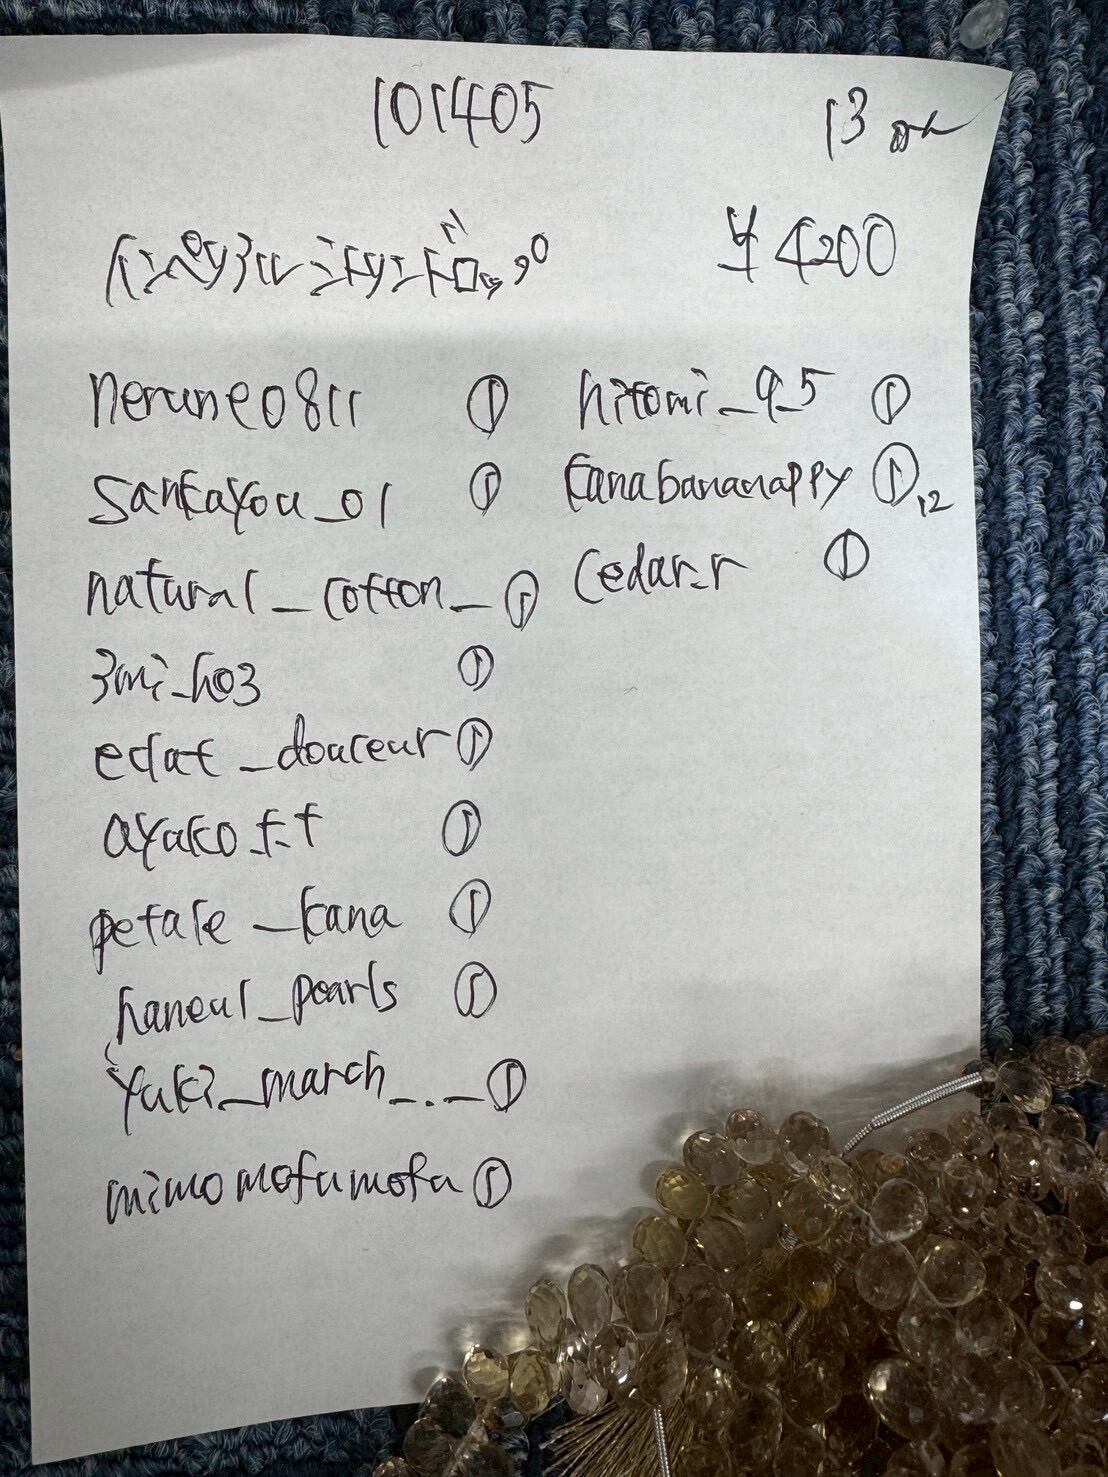 101405
13 or
インペリアルシャンドロップ
¥4200
nerune0811 ①
sankayou_01 ①
natural_cotton_ ①
3mi_ho3 ①
eclat_douceur ①
ayako.t.t ①
petale_kana ①
haneul_pearls ①
yuki_march_._ ①
mimomofumofu ①
hitomi_9_5 ①
kanabananappy ①,12
cedar.r ①